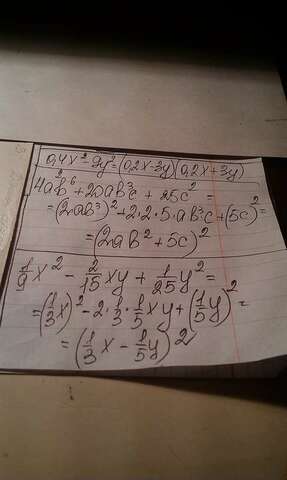 0,4x² - 9y² = (0,2x-3y)(0,2x+3y)
4a²b⁶ + 20ab³c + 25c² =
= (2ab³)² + 2·2·5·ab³c + (5c)² =
= (2ab² + 5c)²
1/9 x² - 2/15 xy + 1/25 y² =
= (1/3 x)² - 2·1/3·1/5 xy + (1/5 y)² =
= (1/3 x - 1/5 y)²